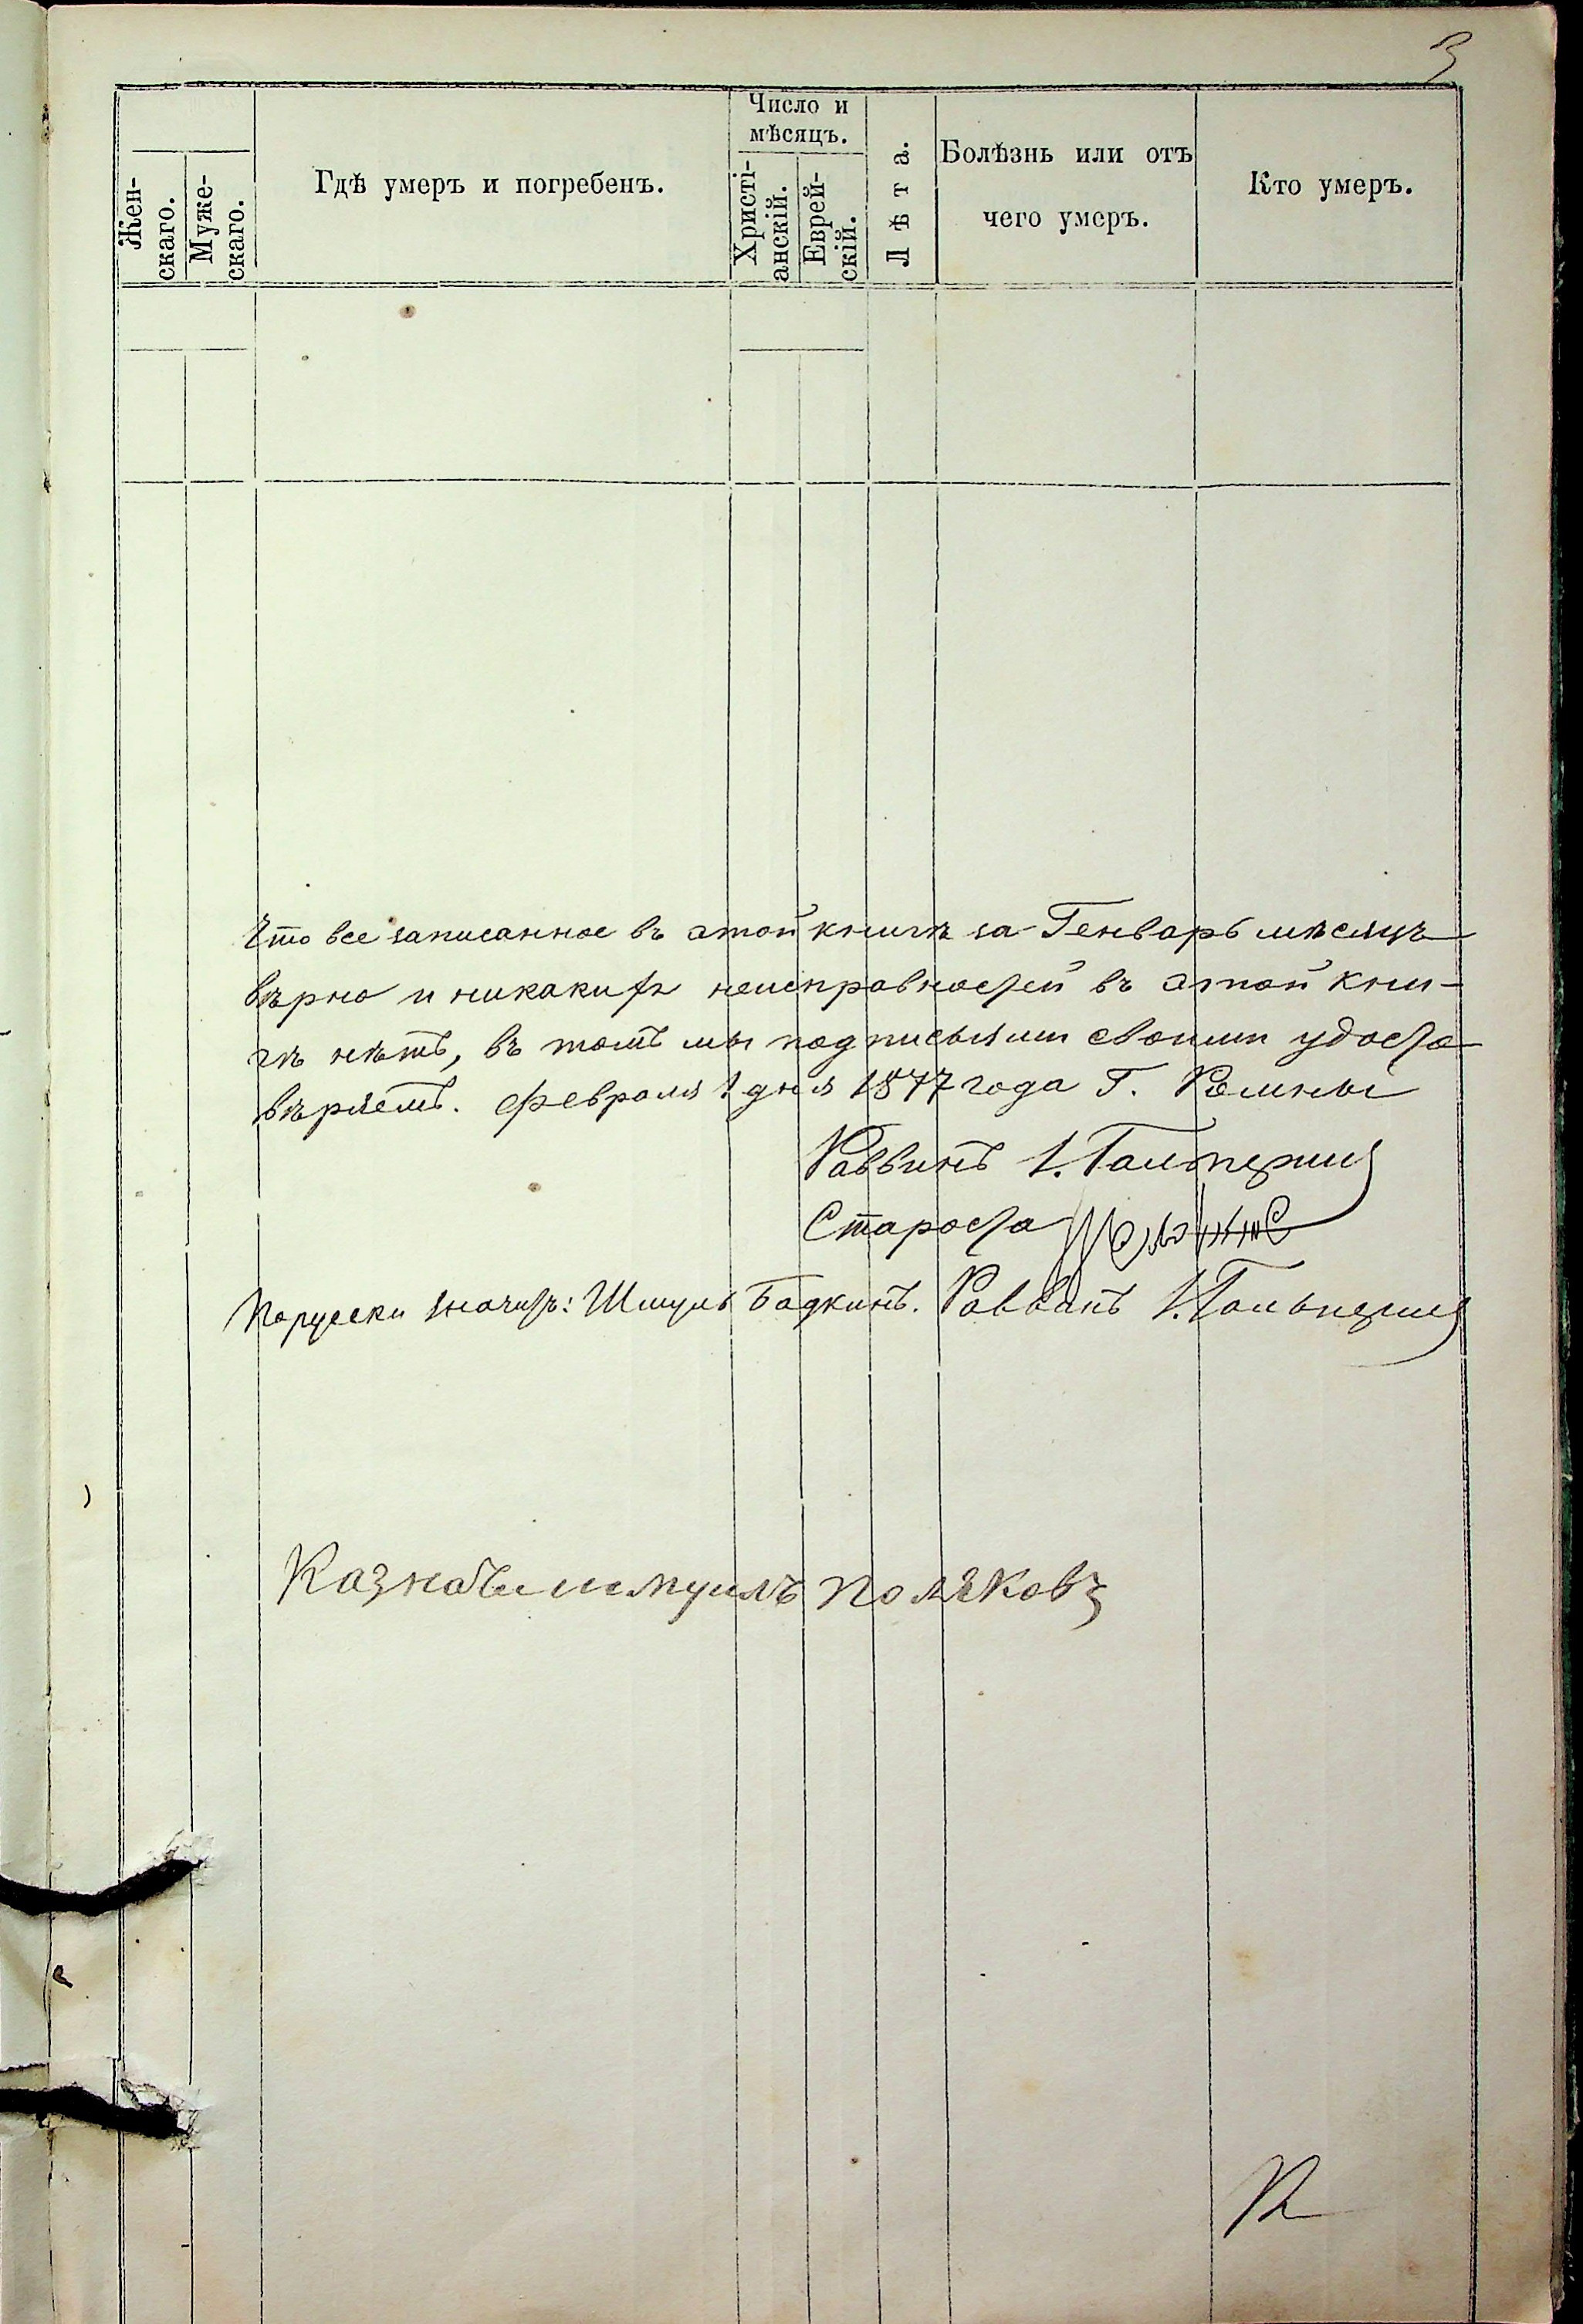 3
Жен-
скаго.
Муже-
скаго.
Гдѣ умеръ и погребенъ.
Число и
мѣсяцъ.
Христі-
анскій.
Еврей-
скій.
Лѣта.
Болѣзнь или отъ
чего умеръ.
Кто умеръ.
Что все записанное въ этой книгѣ за Генварь мѣсяцъ
вѣрно и никакихъ неисправностей въ этой кни-
гѣ нѣтъ, въ томъ мы подписями своими удосто-
вѣряемъ. Февраля 1 дня 1877 года Г. Ромны
Раввинъ І. Гальперинъ
Староста
Порусски значитъ: Шмуль Бадкинъ. Раввинъ І. Гальперинъ
Казначе шмуилъ поляковъ